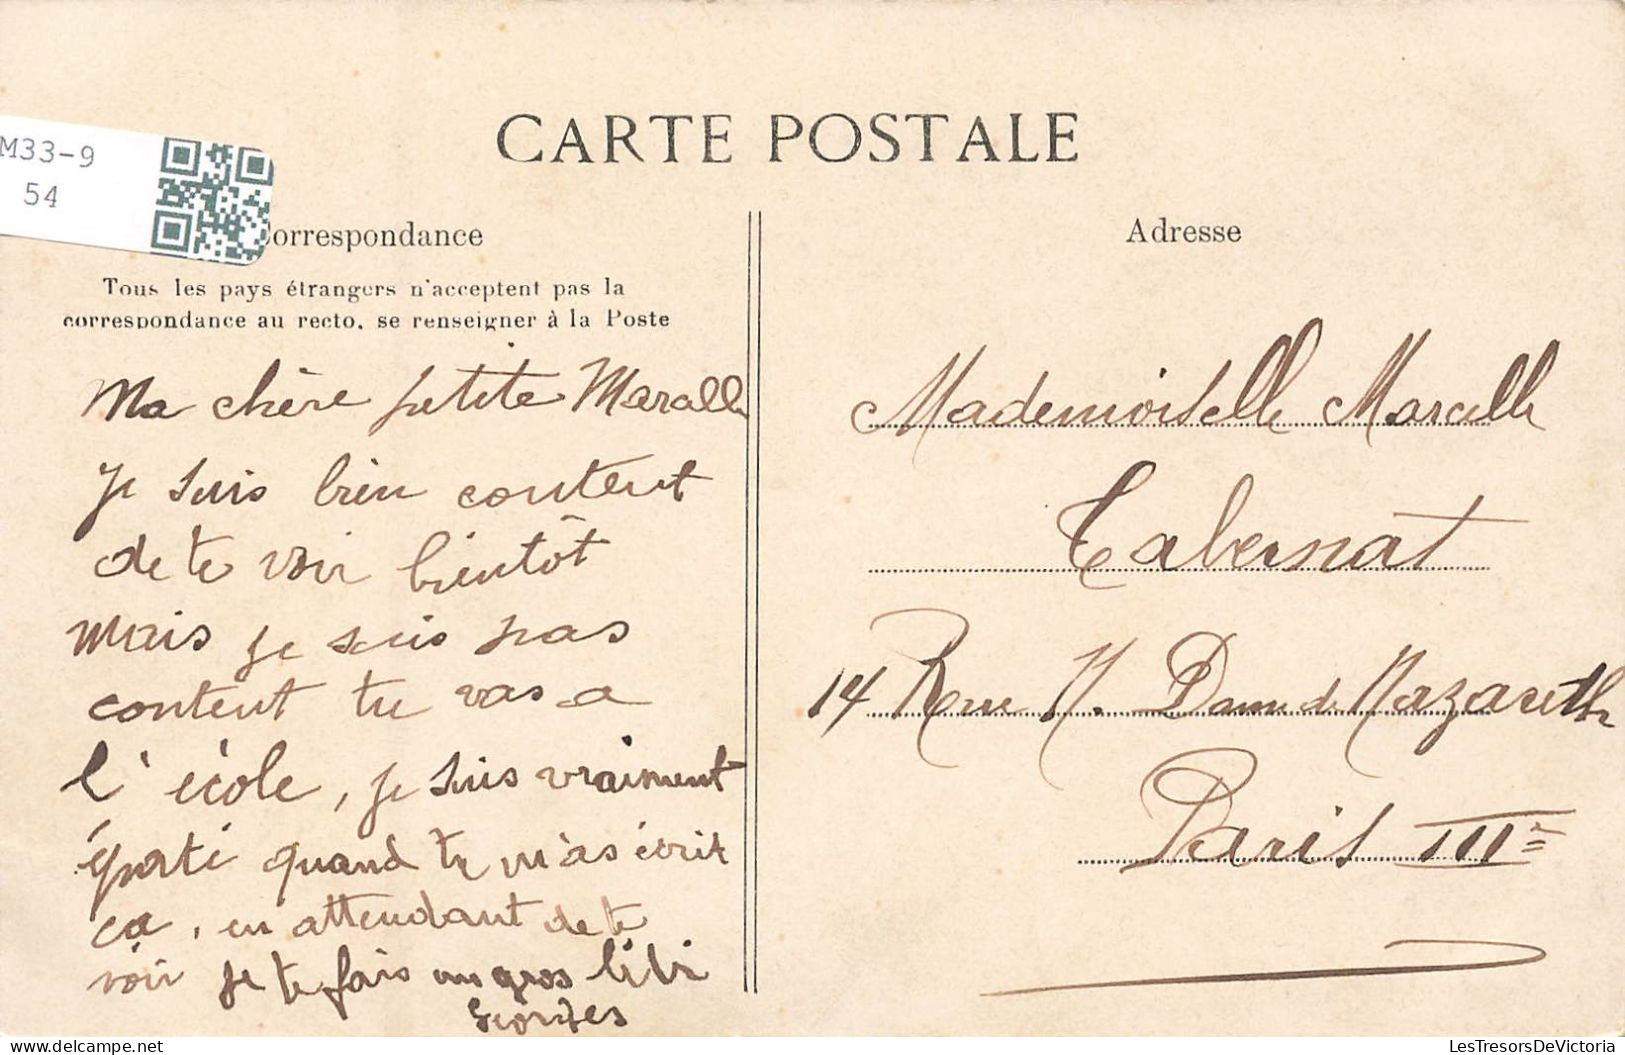 CARTE POSTALE
M33-9
54
Correspondance
Tous les pays étrangers n'acceptent pas la
correspondance au recto, se renseigner à la Poste
Ma chère petite Marcelle
Je suis bien content
de te voir bientôt
mais je suis pas
content tu vas a
l'école, je suis vraiment
épaté quand tu m'as écrit
ca, en attendant de te
voir je te fais un gros bibi
Georges
Adresse
Mademoiselle Marcelle
Tabernat
14 Rue N. Dame de Nazareth
Paris IIIe
LesTresorsDeVictoria